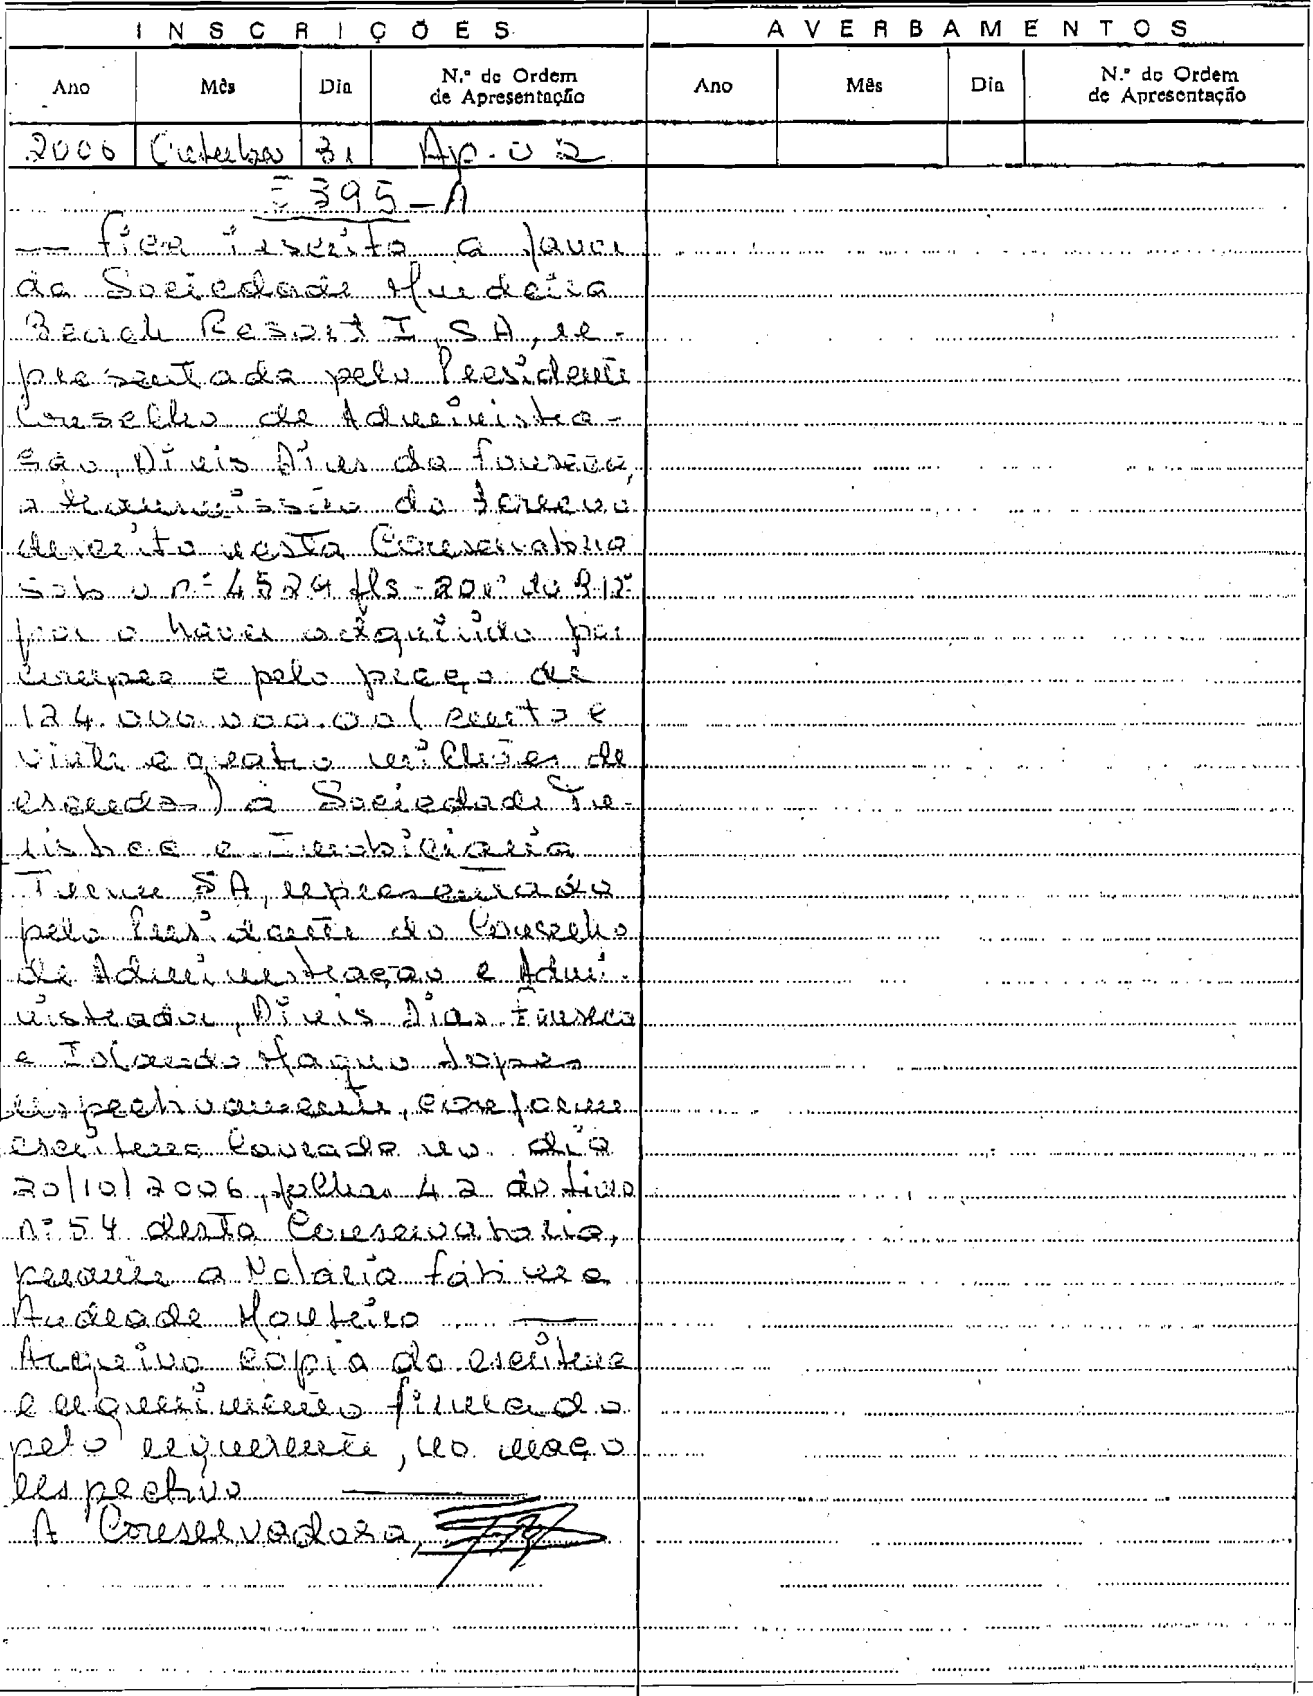 INSCRIÇÕES
AVERBAMENTOS
Ano Mês Dia N.º de Ordem de Apresentação
Ano Mês Dia N.º de Ordem de Apresentação
2006 Outubro 31 Ap. 02
395-A
— Fica inscrito a favor
da Sociedade Murdeira
Beach Resort I, SA, re-
presentada pelo Presidente
Conselho de Administra-
ção, Dinis Dias da Fonseca,
a transmissão do terreno
descrito nesta Conservatória
sob o nº 4524 fls - do
por o haver adquirido por
compra e pelo preço de
124.000.000.00 (cento e
vinte e quatro milhões de
escudos) à Sociedade Tu-
ristica e Imobiliária
SA, representada
pelo Presidente do Conselho
de Administração e Admi-
nistrador, Dinis Dias Fonseca
e Lopes
respectivamente, conforme
escritura lavrada no dia
20/10/2006, folhas 42 do livro
nº 54 desta Conservatória,
perante a Notária Fátima
Andrade Monteiro —
Arquivo cópia da escritura
e requerimento firmado
pelo requerente, no maço
respectivo —
A Conservadora,